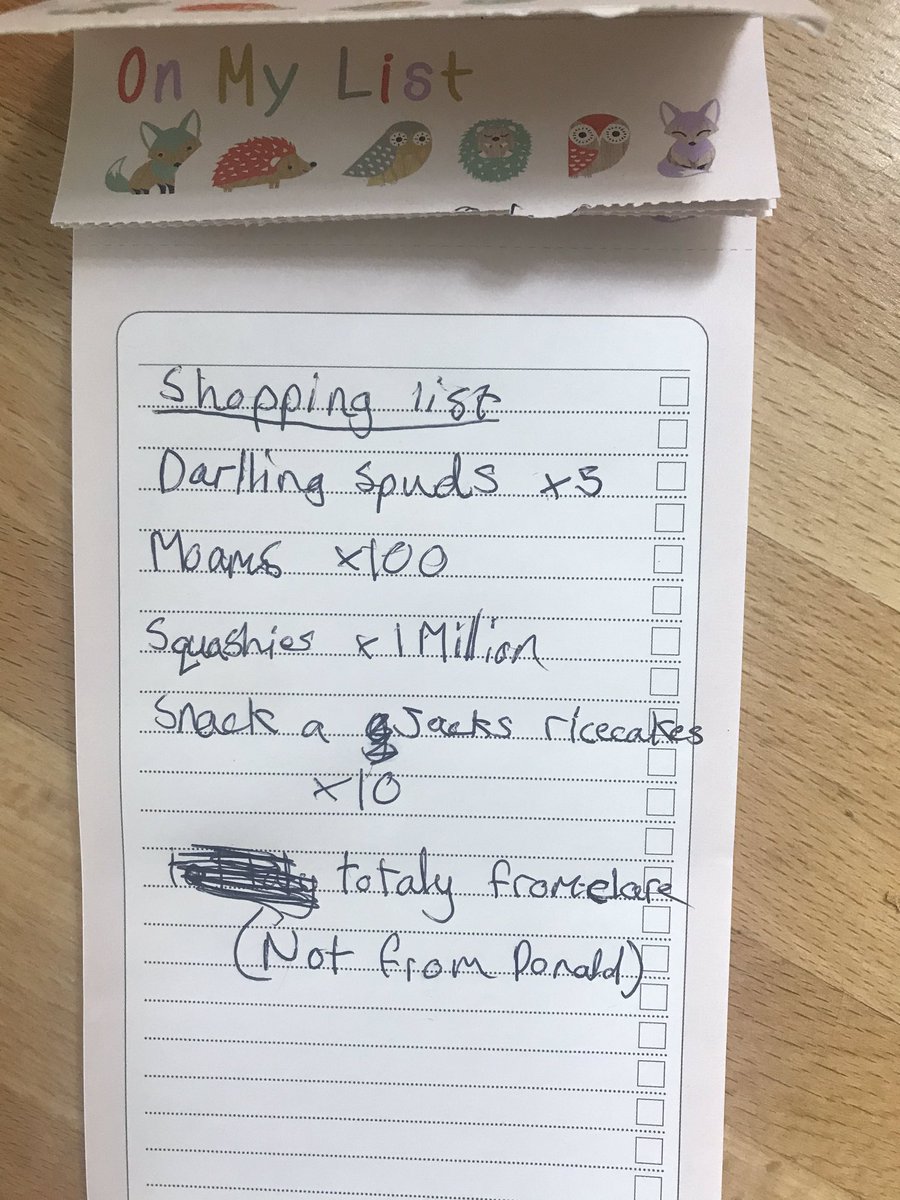 On My List
Shopping list
Darlling spuds x5
Moams x100
Squashies x 1 Million
Snack a Jacks ricecakes
x10
totaly from clare
(Not from Donald)